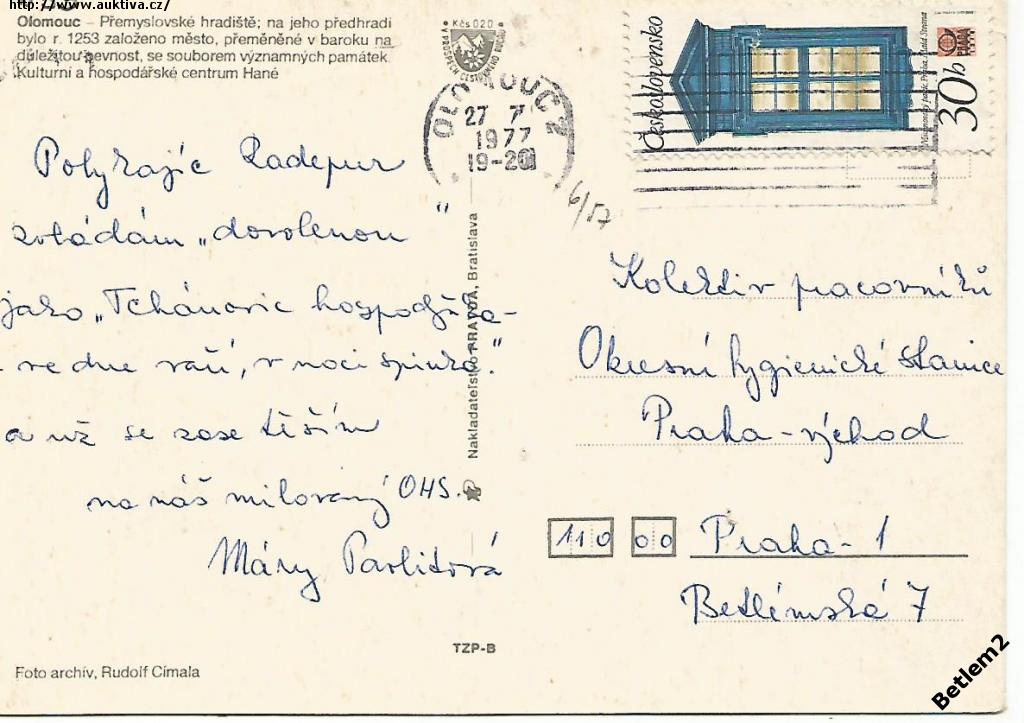 http://www.auktiva.cz/
Olomouc – Přemyslovské hradiště; na jeho předhradí
bylo r. 1253 založeno město, přeměněné v baroku na
důležitou pevnost, se souborem významných památek.
Kulturní a hospodářské centrum Hané
Kčs 020
OLOMOUC 2
27 7
1977
19-20
Československo
30h
PRAGA
6/57
zvládám „dovolenou“
jako „Tchánovic hospodyňka-
ve dne vaří, v noci spinká.“
a už se zase těším
na náš milovaný OHS.
Máry Pavlitová
Nakladatelstvo PRAVDA, Bratislava
Kolektiv pracovníků
Okresní hygienické stanice
Praha-východ
110 00 Praha-1
Betlémská 7
TZP-B
Foto archív, Rudolf Címala
Betlem2